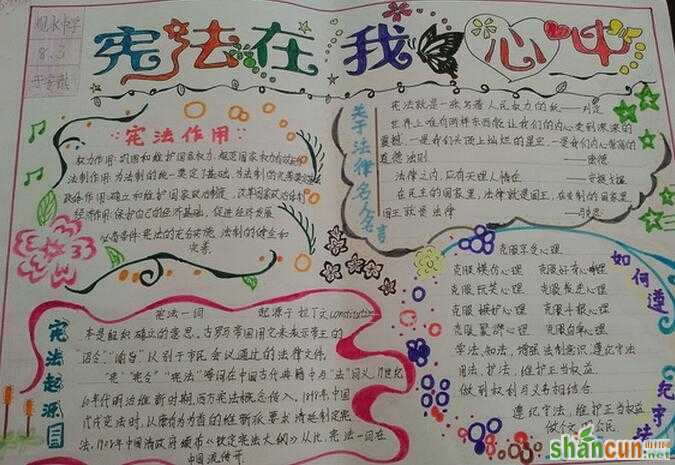 8.3
宪法在我心中
宪法作用:
权力作用:巩固和维护国家权力,规范国家权力的
法制作用:为法制的统一奠定了基础,为法制的完善奠定
政治作用:确立和维护国家政治制度,改革国家政治体制
经济作用:保护自己的经济基础,促进经济发展
必备条件:宪法的充分实施,法制的健全和
完善。
关于法律名人名言
宪法就是一张写着人民权力的纸——列宁
世界上唯有两样东西能让我们的内心受到深深的
震撼,一是我们头顶上灿烂的星空,一是我们内心崇高的
道德法则 ——康德
法律之内,应有天理人情在 ——安提戈槐
在民主的国家里,法律就是国王,在专制的国家里
国王就是法律
如何遵纪守法
克服
克服模仿心理 克服好奇心理
克服玩笑心理 克服侥幸心理
克服嫉妒心理 克服斗狠心理
克服 心理 克服自卑心理
学法,知法,增强法制意识,遵纪守法
用法,护法,维护正当权益
做到权利与义务相结合
遵纪守法,维护正当权益
宪法起源
宪法一词 起源于拉丁文constitution
本是组织确立的意思,古罗马帝国用它来表示帝王的
“诏令”“谕旨”以别于市民会议通过的法律文件。
“宪”“宪令”“宪法”等词在中国古代典籍中与“法”同义,19世纪
60年代明治维新时期,西方宪法概念传入,1898年中国
戊戌变法时,以康有为为首的维新派要求清廷制定宪
法,1908年中国清政府颁布《钦定宪法大纲》从此,宪法一词在
中国流传开
shancun